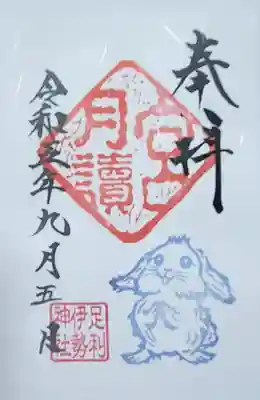 奉拝
月讀宮
令和五年九月五日
足利
伊勢
神社